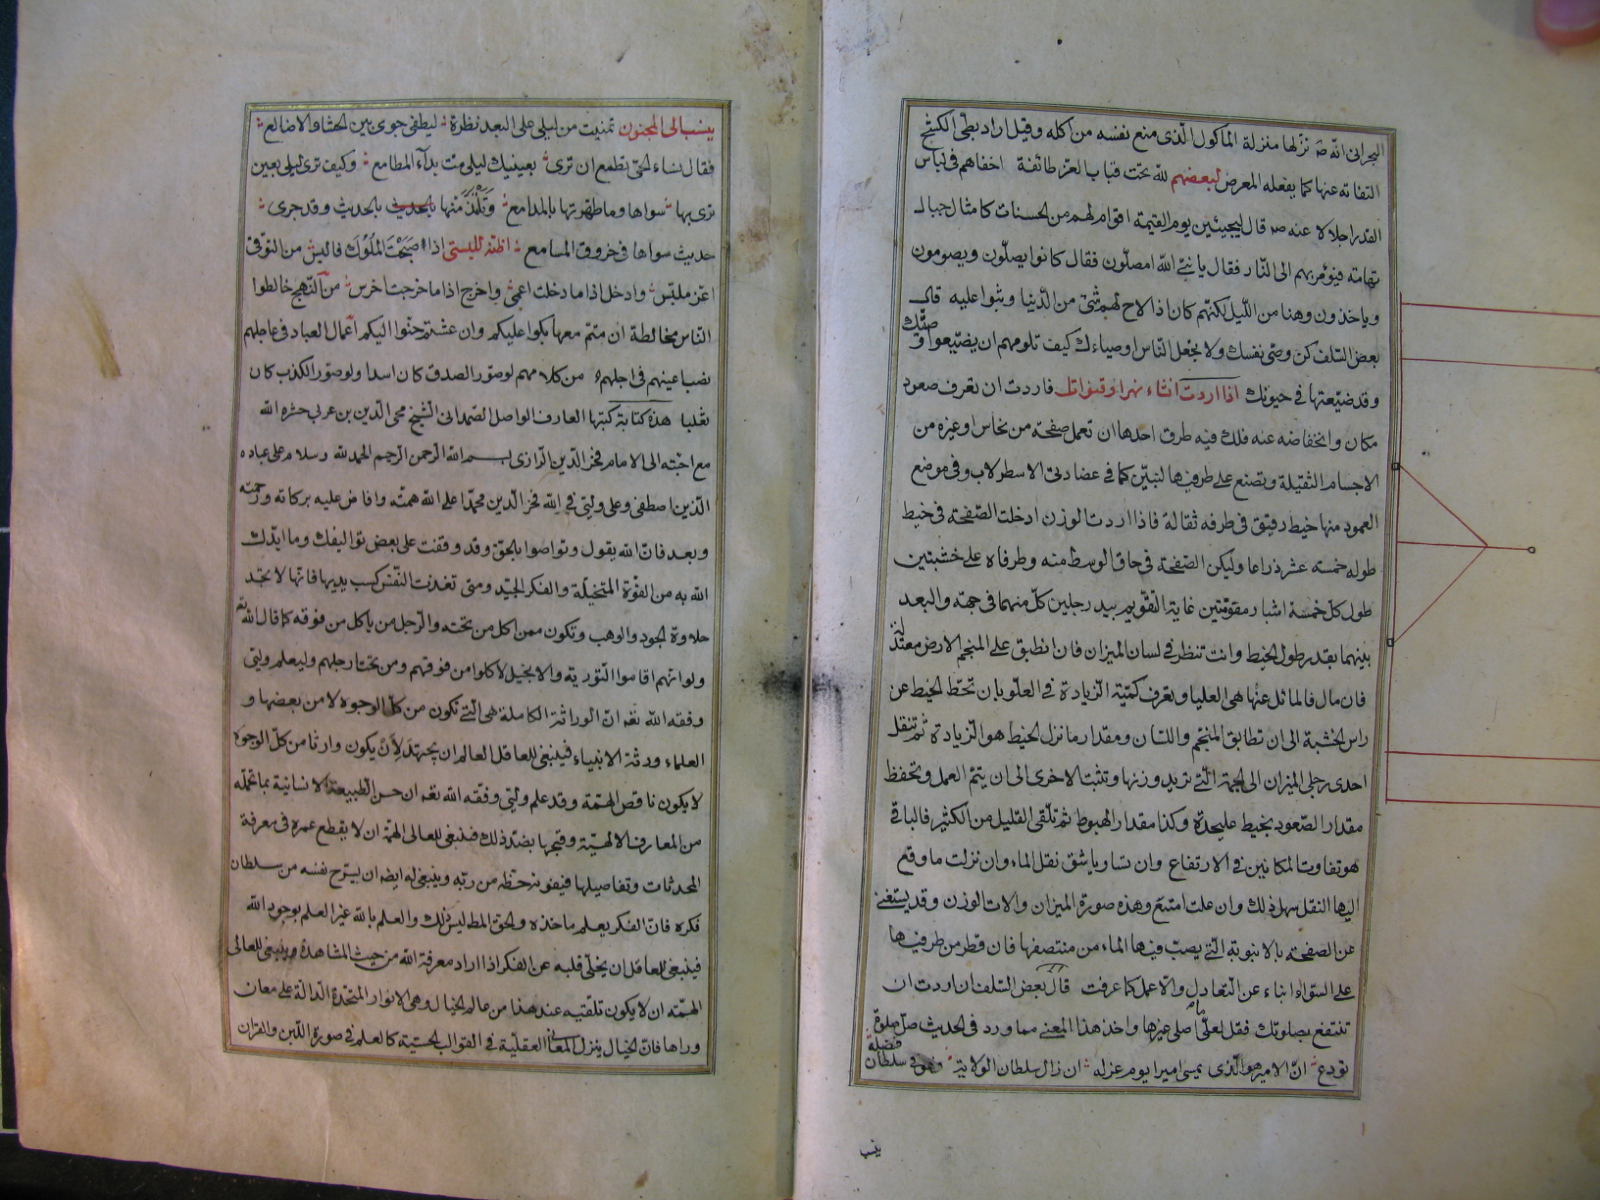 البحرانى الله نزلها منزلة الماكول الذى منع نفسه من اكله وقيل اراد بطى الكشح
التفاته عنها كما يفعله المعرض لبعضهم لله تحت قباب العز طائفة اخفاهم فى لباس
الفقر اجلالا عنه ص قال ليجيئين يوم القيمة اقوام لهم من الحسنات كامثال جبال
تهامه فيؤمر بهم الى النار فقال يا نبى الله امصلون فقال كانوا يصلون ويصومون
وياخذون وهنا من الليل لكنهم كان اذا لاح لهم شئ من الدنيا وثبوا عليه قال
بعض السلف كن وصى نفسك ولا تجعل الناس اوصياءك كيف تلومهم ان يضيعوا وصيتك
وقد ضيعتها فى حيوتك اذا اردت انشاء نهر او قنوات فاردت ان تعرف صعود
مكان وانخفاضه عنه فلك فيه طرق احدها ان تعمل صفحة من نحاس او غيره من
الاجسام الثقيلة وتضع على طرفيها لبنتين كما فى عضادتى الاسطرلاب وفى موضع
العمود منها خيط دقيق فى طرفه ثقالة فاذا اردت الوزن ادخلت الصفحة فى خيط
طوله خمسة عشر ذراعا وليكن الصفحة فى حاق الوسط منه وطرفاه على خشبتين
طول كل خمسة اشبار مقومتين غاية التقويم بيد رجلين كل منهما فى جهة والبعد
بينهما بقدر طول الخيط وانت تنظر فى لسان الميزان فان انطبق على المنجم الارض معتدلة
فان مال فالمائل عنها هى العليا وتعرف كمية الزيادة فى العلو بان تحط الخيط عن
راس الخشبة الى ان تطابق المنجم واللسان ومقدار ما نزل الخيط هو الزيادة ثم تنقل
احدى رجلى الميزان الى الجهة التى تريد وزنها وتثبت الاخرى الى ان يتم العمل وتحفظ
مقدار الصعود بخيط عليحدة وكذا مقدار الهبوط ثم تلقى القليل من الكثير فالباقى
هو تفاوت المكانين فى الارتفاع وان تساويا شق نقل الماء وان نزلت ما وقع
اليها النقل سهل ذلك وان علت امتنع وهذه صورة الميزان والات الوزن وقد يستغنى
عن الصفحة بالانبوبة التى يصب فيها الماء من منتصفها فان قطر من طرفيها
على السواء انباء عن التعادل والا عمل كما عرفت قال بعض السلف ان اردت ان
تنتفع بصلوتك فقل لعلى ما اصلى غيرها واخذ هذا المعنى مما ورد فى الحديث صل صلوة
تودع ان الامير هو الذى يمسى اميرا يوم عزله ان زال سلطان الولاية فهو فى سلطان فضله
ينسب
ينسب الى المجنون تمنيت من ليلى على البعد نظرة ليطفى جوى بين الحشا والاضالع
فقال نساء الحى تطمع ان ترى بعينيك ليلى مت بداء المطامع وكيف ترى ليلى بعين
ترى بها سواها وما طهرتها بالمدامع وتلتذ منها بالحديث وقد جرى
حديث سواها فى خروق المسامع اظنه للبستى اذا صحبت الملوك فالبس من التوقى
اعز ملبس وادخل اذا ما دخلت اعمى واخرج اذا ما خرجت اخرس من النهج خالطوا
الناس مخالطة ان متم معها بكوا عليكم وان عشتم حنوا اليكم اعمال العباد فى عاجلهم
نصب اعينهم فى اجلهم من كلامهم لو صور الصدق كان اسدا ولو صور الكذب كان
ثعلبا هذه كتابة كتبها العارف الواصل الصمدانى الشيخ محى الدين بن عربى حشره الله
مع احبته الى الامام فخر الدين الرازى بسم الله الرحمن الرحيم الحمد لله وسلام على عباده
الذين اصطفى وعلى وليى فى الله فخر الدين محمد اعلى الله همته وافاض عليه بركاته ورحمته
وبعد فان الله يقول وتواصوا بالحق وقد وقفت على بعض تواليفك وما ايدك
الله به من القوة المتخيلة والفكر الجيد ومتى تغذت النفس كسب يديها فانها لا تجد
حلاوة الجود والوهب وتكون ممن اكل من تحته والرجل من ياكل من فوقه كما قال الله تع
ولو انهم اقاموا التورية والانجيل لاكلوا من فوقهم ومن تحت ارجلهم وليعلم وليى
وفقه الله تعه ان الوراثة الكاملة هى التى تكون من كل الوجوه لا من بعضها و
العلماء ورثة الانبياء فينبغى للعاقل العالم ان يجتهد لان يكون وارثا من كل الوجوه
لا يكون ناقص الهمة وقد علم وليى وفقه الله تعه ان حسن الطبيعة الانسانية بما تحمله
من المعارف الالهية وقبحها بضد ذلك فينبغى للعالى الهمة ان لا يقطع عمره فى معرفة
المحدثات وتفاصيلها فيفوته حظه من ربه وينبغى له ايضه ان يسرح نفسه من سلطان
فكره فان الفكر يعلم ماخذه والحق المط ليس ذلك والعلم بالله غير العلم بوجود الله
فينبغى للعاقل ان يخلى قلبه عن الفكر اذا اراد معرفة الله من حيث المشاهدة وينبغى للعالى
الهمة ان لا يكون تلقيه عند هذا من عالم الخيال وهى الانوار المتجدة الدالة على معان
وراها فان الخيال ينزل المعانى العقلية فى القوالب الحسية كالعلم فى صورة اللبن والقران